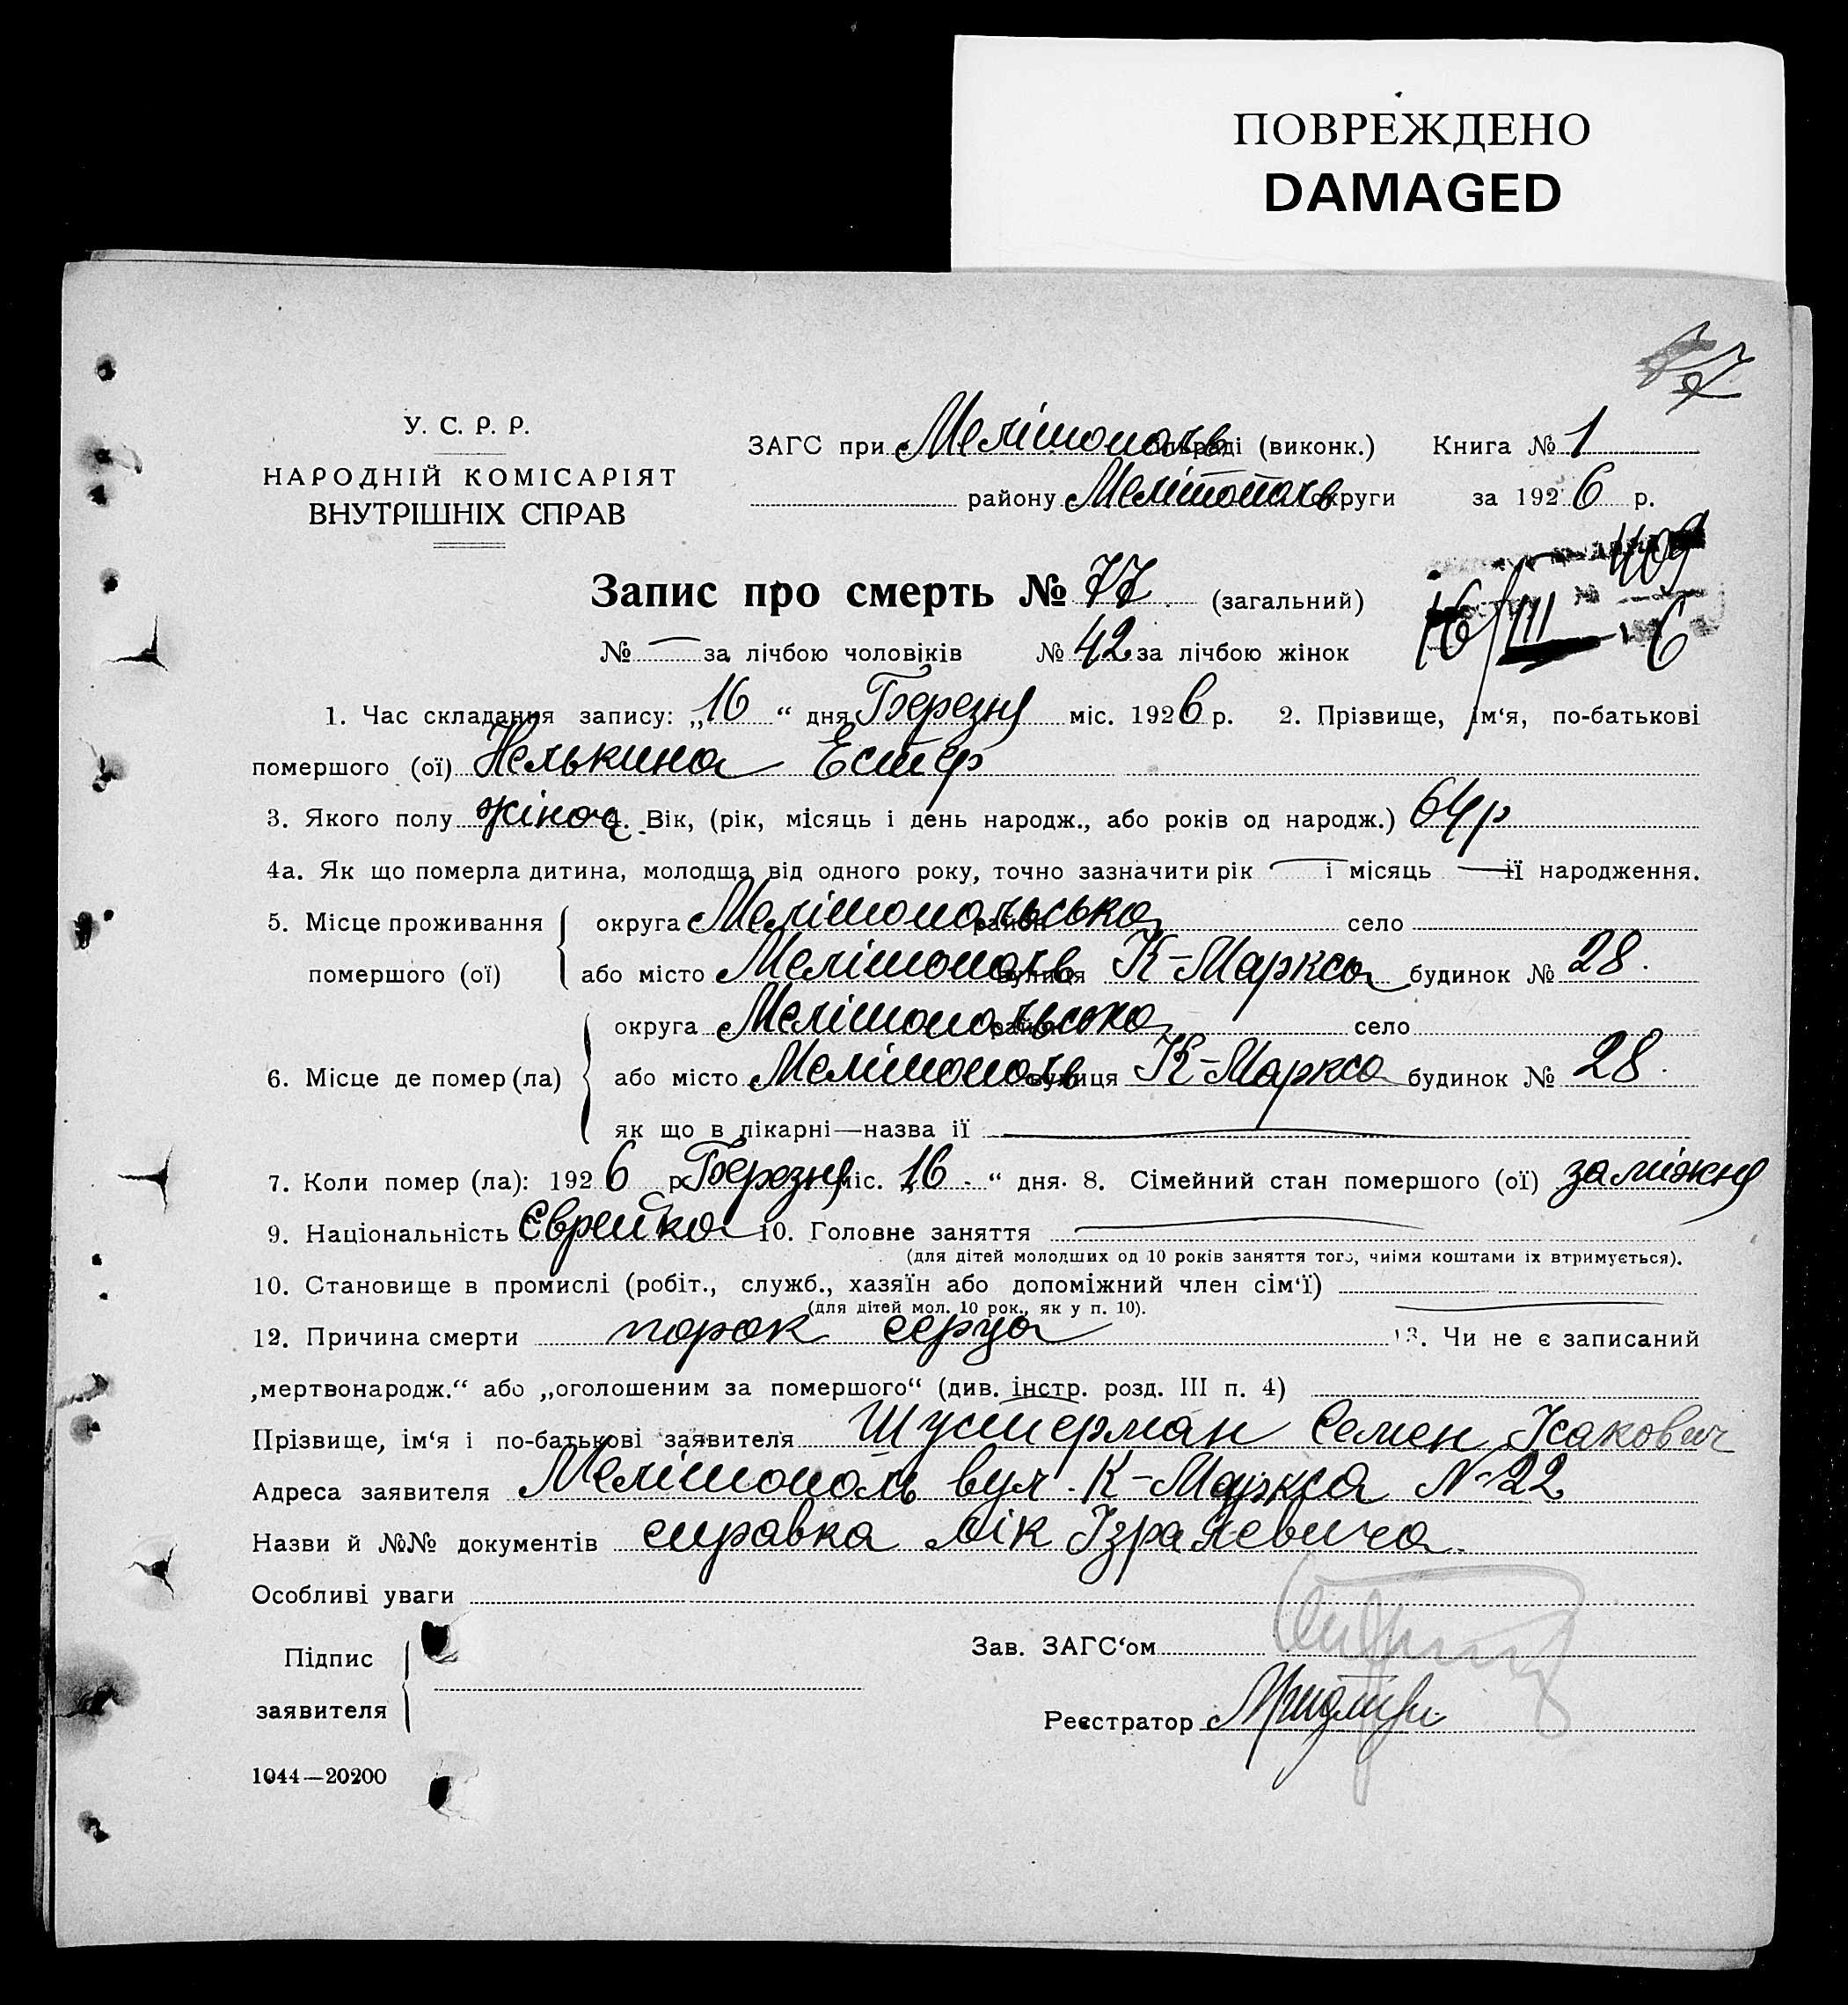 ПОВРЕЖДЕНО
DAMAGED
77
У. С. Р. Р.
НАРОДНІЙ КОМІСАРІЯТ
ВНУТРІШНІХ СПРАВ
ЗАГС при Мелітополь міськраді (виконк.) Книга № 1
району Мелітополь округи за 1926 р.
409
16/III 6
Запис про смерть № 77 (загальний)
№ — за лічбою чоловіків № 42 за лічбою жінок
1. Час складання запису: „16“ дня Березня міс. 1926 р. 2. Прізвище, ім‘я, по-батькові
помершого (ої) Нелькина Естер
3. Якого полу жіноч. 4. Вік, (рік, місяць і день народж., або років од народж.) 64 р
4а. Як що померла дитина, молодща від одного року, точно зазначити рік — і місяць — її народження.
5. Місце проживання помершого (ої) округа Мелітопольська район село
або місто Мелітополь вулиця К-Маркса будинок № 28.
6. Місце де помер (ла) округа Мелітопольська район село
або місто Мелітополь вулиця К-Маркса будинок № 28.
як що в лікарні—назва її —
7. Коли помер (ла): 1926 р. Березня міс. „16“ дня. 8. Сімейний стан помершого (ої) заміжня
9. Національність Єврейка 10. Головне заняття —
(для дітей молодших од 10 років заняття того, чиїми коштами їх втримується).
10. Становище в промислі (робіт., служб., хазяїн або допоміжний член сім‘ї) —
(для дітей мол. 10 рок., як у п. 10).
12. Причина смерти порок серца 13. Чи не є записаний
„мертвонародж.“ або „оголошеним за помершого“ (див. інстр. розд. III п. 4)
Прізвище, ім‘я і по-батькові заявителя Шустерман Семен Ісакович
Адреса заявителя Мелітополь вул. К-Маркса № 22
Назви й №№ документів справка лік Ізраілевича
Особливі уваги
Підпис
заявителя
Зав. ЗАГС‘ом
Реєстратор
1044—20200